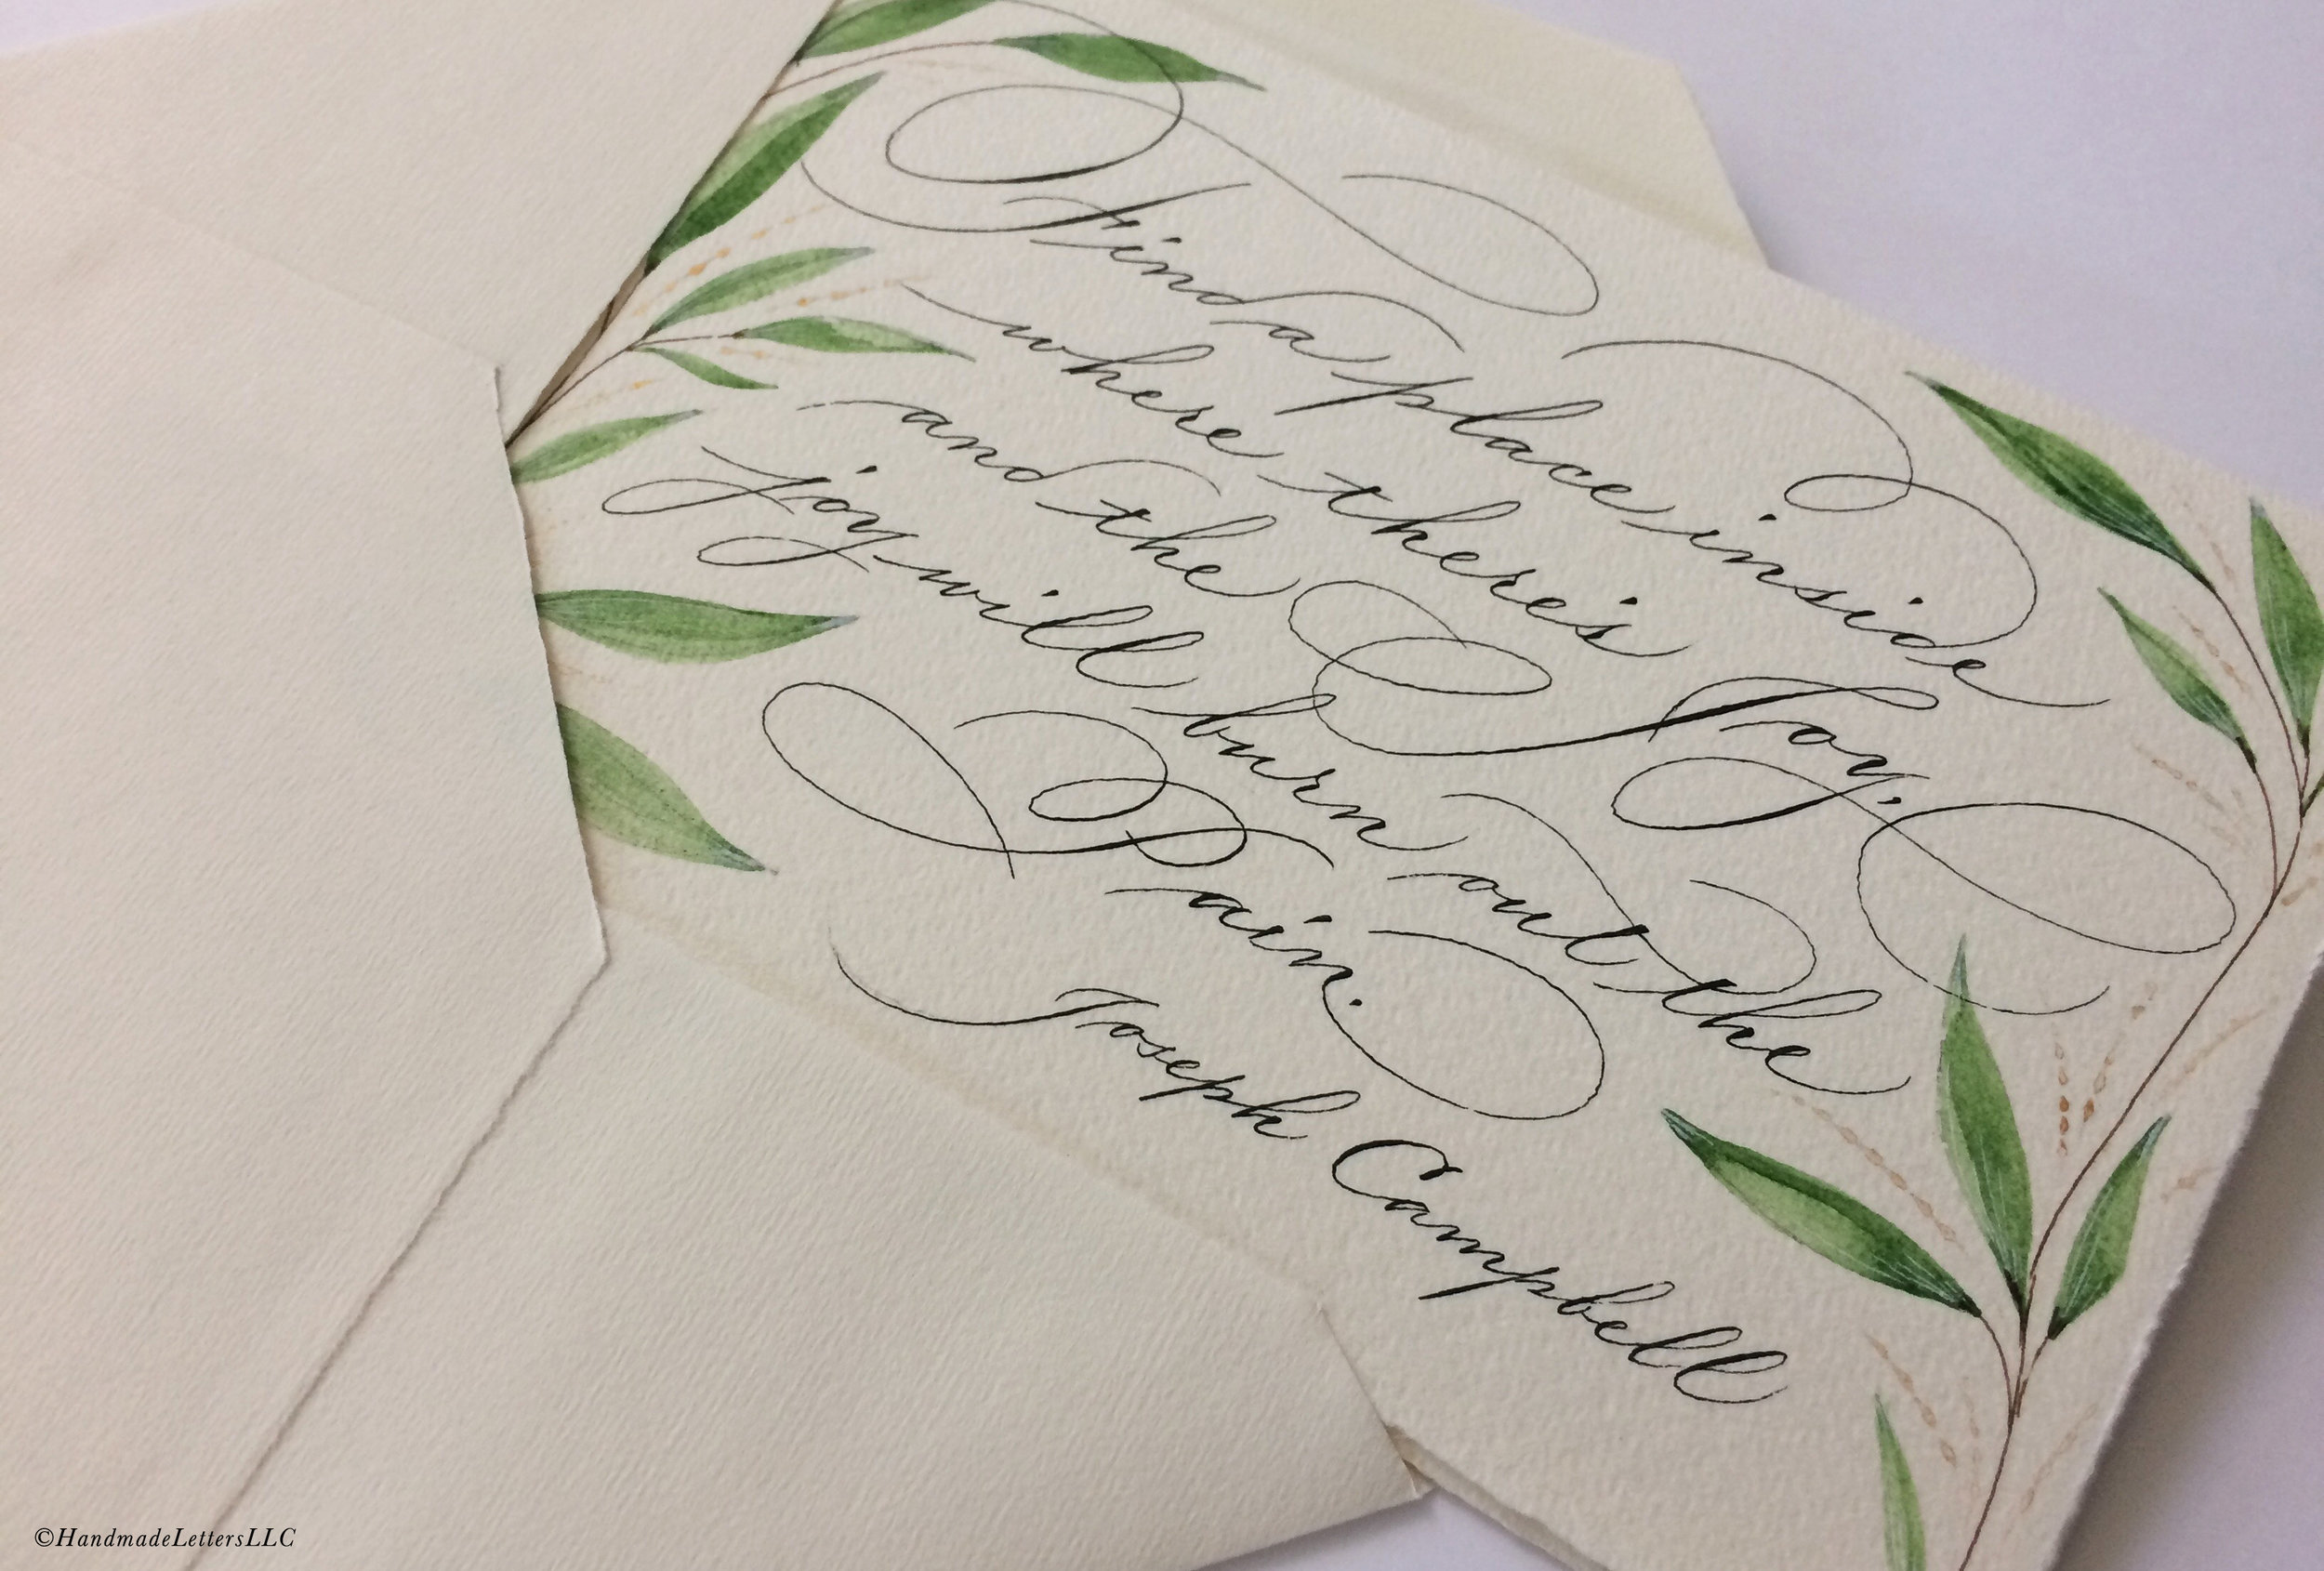 Find a place inside
where there's Joy,
and the
joy will burn out the
Pain.
Joseph Campbell
©HandmadeLettersLLC